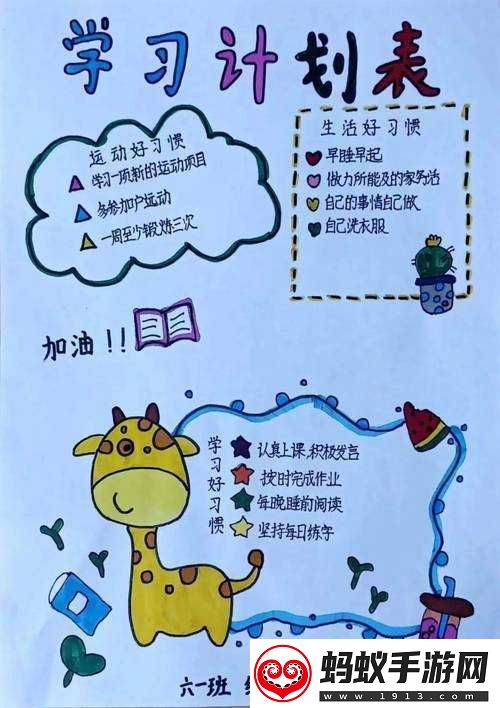 学习计划表
运动好习惯
学习一项新的运动项目
多参加户运动
一周至少锻炼三次
生活好习惯
早睡早起
做力所能及的家务活
自己的事情自己做
自己洗衣服
加油!!
学习好习惯
认真上课,积极发言
按时完成作业
每晚睡前阅读
坚持每日练字
六一班
蚂蚁手游网
www.1913.com